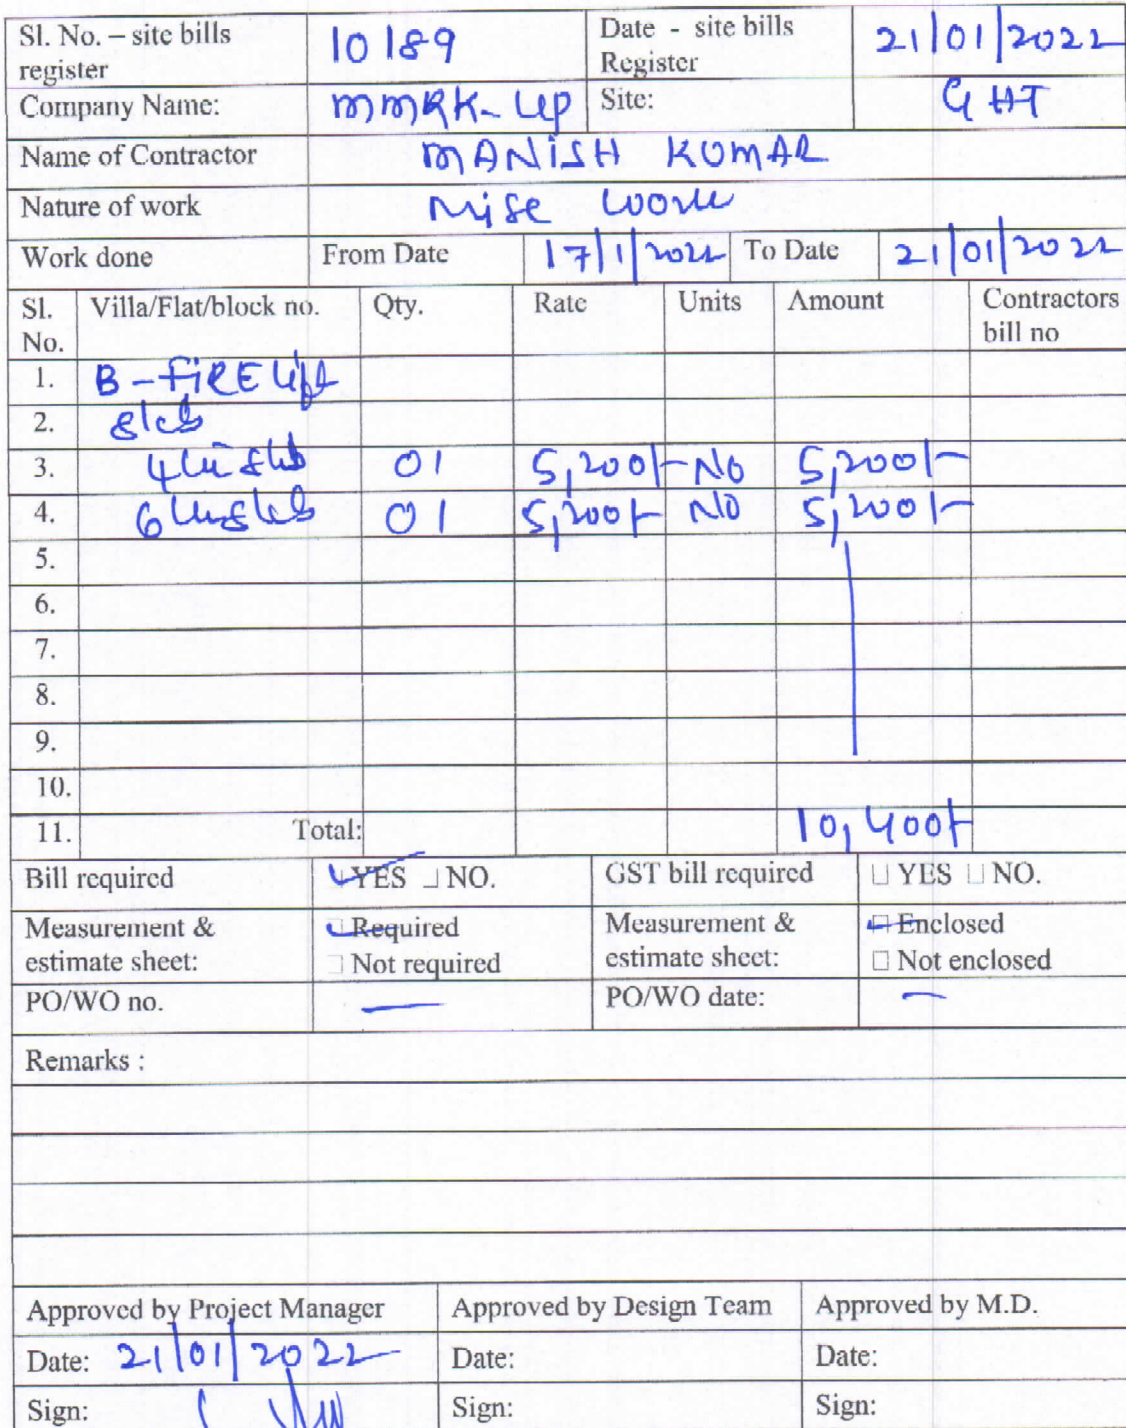 Sl. No. – site bills register 10189 Date - site bills Register 21/01/2022
Company Name: MMRK-UP Site: GHT
Name of Contractor MANISH KUMAR
Nature of work Misc work
Work done From Date 17/1/2022 To Date 21/01/2022
Sl. No. Villa/Flat/block no. Qty. Rate Units Amount Contractors bill no
1. B - FIRE lift
2. slab
3. 4th slab 01 5,200/- No 5,200/-
4. 6th slab 01 5,200/- No 5,200/-
5.
6.
7.
8.
9.
10.
11. Total: 10,400/-
Bill required YES NO. GST bill required YES NO.
Measurement & estimate sheet: Required Not required Measurement & estimate sheet: Enclosed Not enclosed
PO/WO no. — PO/WO date: —
Remarks :
Approved by Project Manager Approved by Design Team Approved by M.D.
Date: 21/01/2022 Date: Date:
Sign: Sign: Sign: